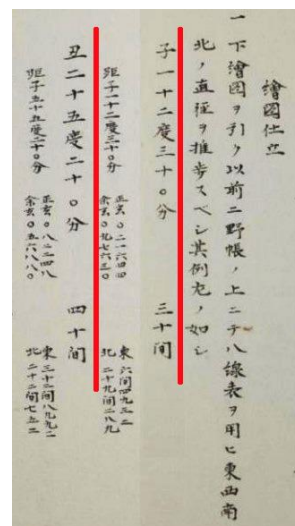 繪圖仕立
一 下繪圖ヲ引ク以前ニ野帳ノ上ニテ八線表ヲ用ヒ東西南
北ノ直径ヲ推歩スベシ其例左ノ如シ
子一十二度三十〇分 三十間
距子一十二度三十〇分
正玄〇二一六四四
余玄〇九七六三〇
東 六間四九三二
北 二十九間二八九
丑二十五度二十〇分 四十間
距子五十五度二十〇分
正玄〇八二二四八
余玄〇五六八八〇
東 三十二間八九九二
北 二十二間七五二